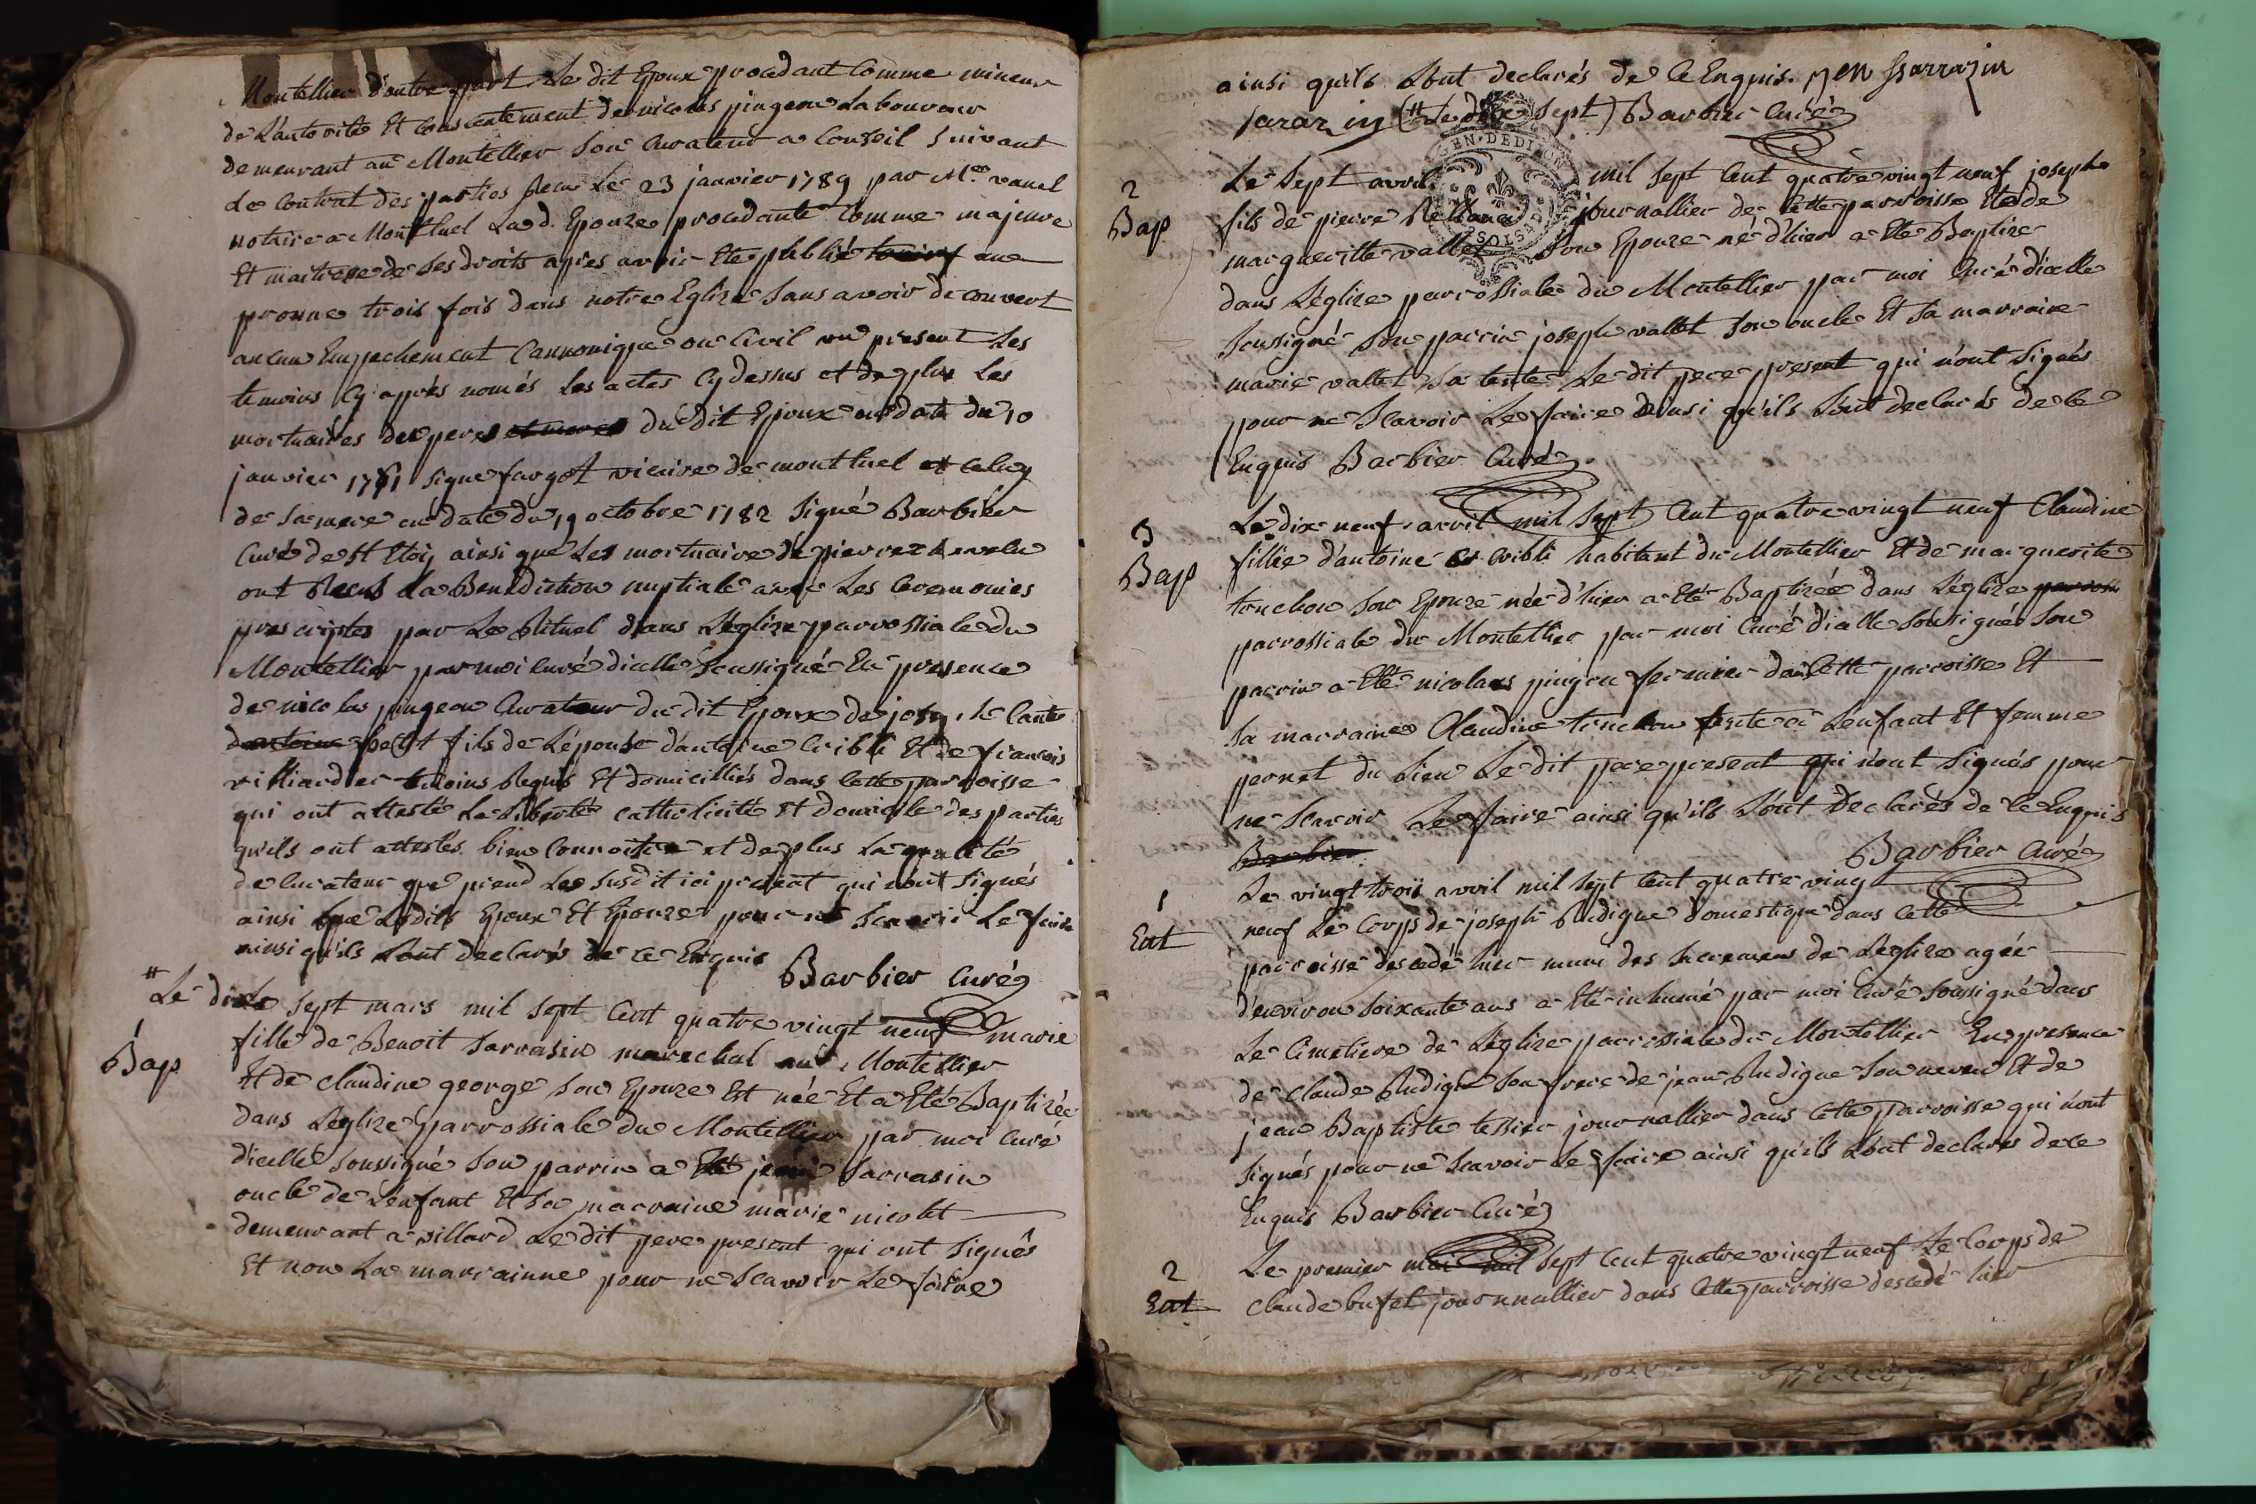 Montellier d'autre part. Le dit Epoux procedant Comme mineur
de L'autorité Et Consentement de nicolas pingeon Laboureur
demeurant au Montellier Son Curateur a Conseil Suivant
Le Contrat des parties Recu Le 23 janvier 1789 par Me vanel
notaire a Montluel La d. Epouze procedante Comme majeure
Et maitresse de Ses droits apres avoir Eté publié au
pronne trois fois dans notre Eglize Sans avoir decouvert
aucun Empechement Cannonique ou Civil vu present Les
temoins Cy après només Les actes Cy dessus et de plus Les
mortuaires du pere et mere du dit Epoux en date du 10
janvier 1761 Signe fargot vicaire de montluel et Celuy
de Sa mere en date du 19 octobre 1782 Signé Barbier
Curé de St Eloy ainsi que Les mortuaire de pierre
ont Recus La Benediction nuptiale avec Les Ceremonies
prescriptes par Le Rituel dans L'eglize parrossiale du
Montellier par moi Curé d'icelle Soussigné En presence
de nicolas pingeon Curateur du dit Epoux de
petit fils de L'épouse d'antoine Cribli Et de francois
villiardier temoins Requis Et domicilliés dans Cette parroisse
qui ont attesté La Liberté Catholicité Et domicile des parties
qu'ils ont attestés bien Connoitre et de plus La qualité
de Curateur que prend Le Susdit ici present qui n'ont Signés
ainsi que Lesdits Epoux Et Epouze pour ne Scavoir Le faire
ainsi qu'ils Sont declarés de Ce Enquis Barbier Curé
# Le dix Sept mars mil Sept Cent quatre vingt neuf marie
1 fille de Benoit Sarrasin marechal au Montellier
Bap Et de Claudine george Son Epouze Est née Et a Eté Baptizée
dans L'eglize parrossiale du Montellier par moi Curé
d'icelle Soussigné Son parrin a Eté Sarrasin
oncle de L'enfant Et Sa marraine marie nicolet
demeurant a villard Le dit pere present qui ont Signés
Et non La marrainne pour ne Scavoir Le faire
ainsi qu'ils Sont declarés de Ce Enquis. Sarrazin
Sarazin (# Le dix Sept) Barbier Curé
2 Le Sept avril mil Sept Cent quatre vingt neuf joseph
Bap fils de pierre journallier de Cette parroisse Et de
margueritte vallet Son Epouze né d'hier a Eté Baptizé
dans L'églize parrossiale du Montellier par moi Curé d'icelle
Soussigné Son parrin joseph vallet Son oncle Et Sa marraine
marie vallet Sa tente Le dit pere present qui n'ont Signés
pour ne Scavoir Le faire ainsi qu'ils Sont declarés de Ce
Enquis Barbier Curé
3 Le dix neuf avril mil Sept Cent quatre vingt neuf Claudine
Bap fillie d'antoine Cribli habitant du Montellier Et de marguerite
tonchon Son Epouze née d'hier a Eté Baptizée dans L'eglize
parrossiale du Montellier par moi Curé d'icelle Soussigné Son
parrin a Eté nicolas pingeon fermier dans Cette parroisse Et
Sa marraine Claudine tonchon tente a L'enfant Et femme
pernet du Lieu Le dit pere present qui n'ont Signés pour
ne Scavoir Le faire ainsi qu'ils Sont declarés de Ce Enquis
Barbier
Barbier Curé
1 Le vingt trois avril mil Sept Cent quatre ving
Ent neuf Le Corps de joseph Rudigue domestique dans Cette
parroisse descedé hier muni des Sacremens de L'eglize agée
d'environ Soixante ans a Eté inhumé par moi Curé Soussigné dans
Le Cimetiere de L'eglize parrossiale du Montellier En presence
de Claude Rudigue Son frere de jean Rudigue Son neveu Et de
jean Baptiste tessier journallier dans Cette parroisse qui n'ont
Signés pour ne Scavoir Le faire ainsi qu'ils Sont declarés de Ce
Enquis Barbier Curé
2 Le premier mai mil Sept Cent quatre vingt neuf Le Corps de
Ent Claude bufet journnallier dans Cette parroisse descedé hier